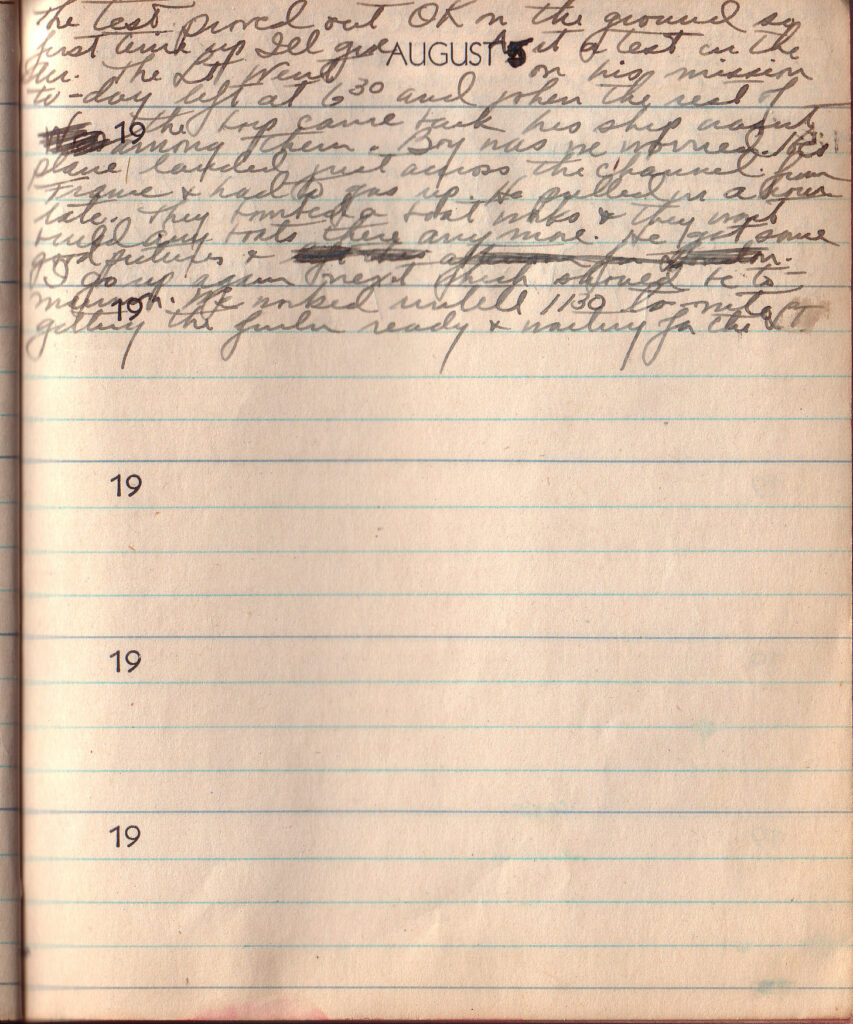 The test proved out OK on the ground so
first time up Ill give it a test in the
AUGUST 5
air. The Lt. Went on his mission
to-day left at 6³⁰ and when the rest of
the boys came back his ship wasnt
19
among them. Boy was we worried. His
plane landed just across the channel from
France & had to gas up. He pulled in a hour
late. They bombed a boat works & they wont
build any boats there any more. He got some
good pictures &
I go up again next
19
We worked untill 1130 to-nite
getting the ready & waiting for the LT.
19
19
19